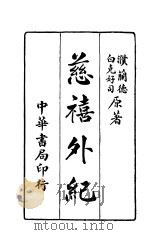 濮蘭德
白克好司
原著
慈禧外紀
中華書局印行
www.tooopoo.info